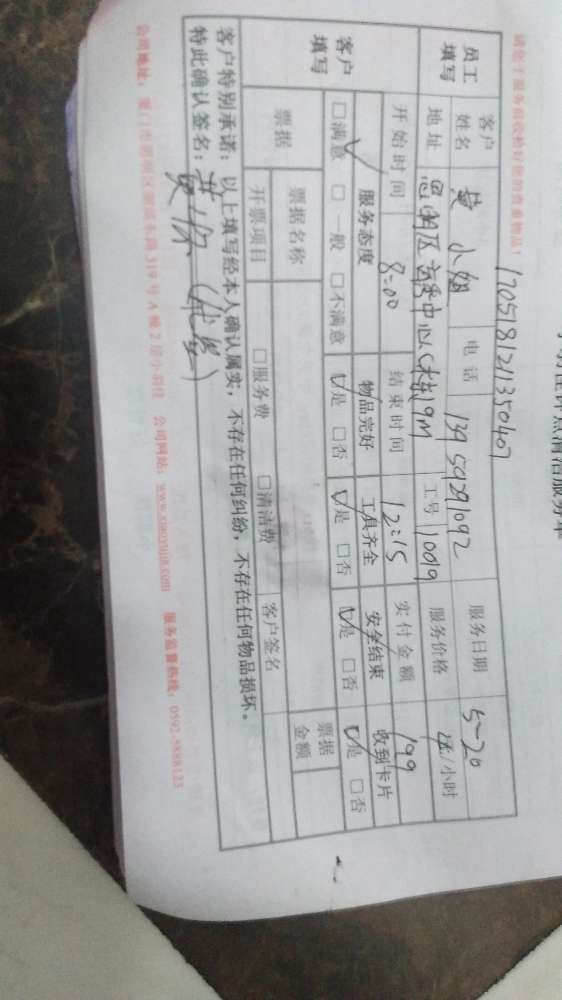 请您于服务前收检好您的贵重物品！
170518121350407
员工填写
客户姓名 黄小姐 电话 13959291092 服务日期 5-20
地址 思明区 中心C栋19M 工号 10019 服务价格 /小时
开始时间 8:00 结束时间 12:15 实付金额 199
客户填写
服务态度 物品完好 工具齐全 安全结束 收到卡片
□满意 □一般 □不满意 □是 □否 □是 □否 □是 □否 □是 □否
票据 票据名称 客户签名 票据金额
开票项目 □服务费 □清洁费
客户特别承诺：以上填写经本人确认属实，不存在任何纠纷，不存在任何物品损坏。
特此确认签名：
公司地址：厦门市思明区 319号A幢2层小羽佳 公司网站：www.xiaoyujia.com 服务监督热线：0592-5888123